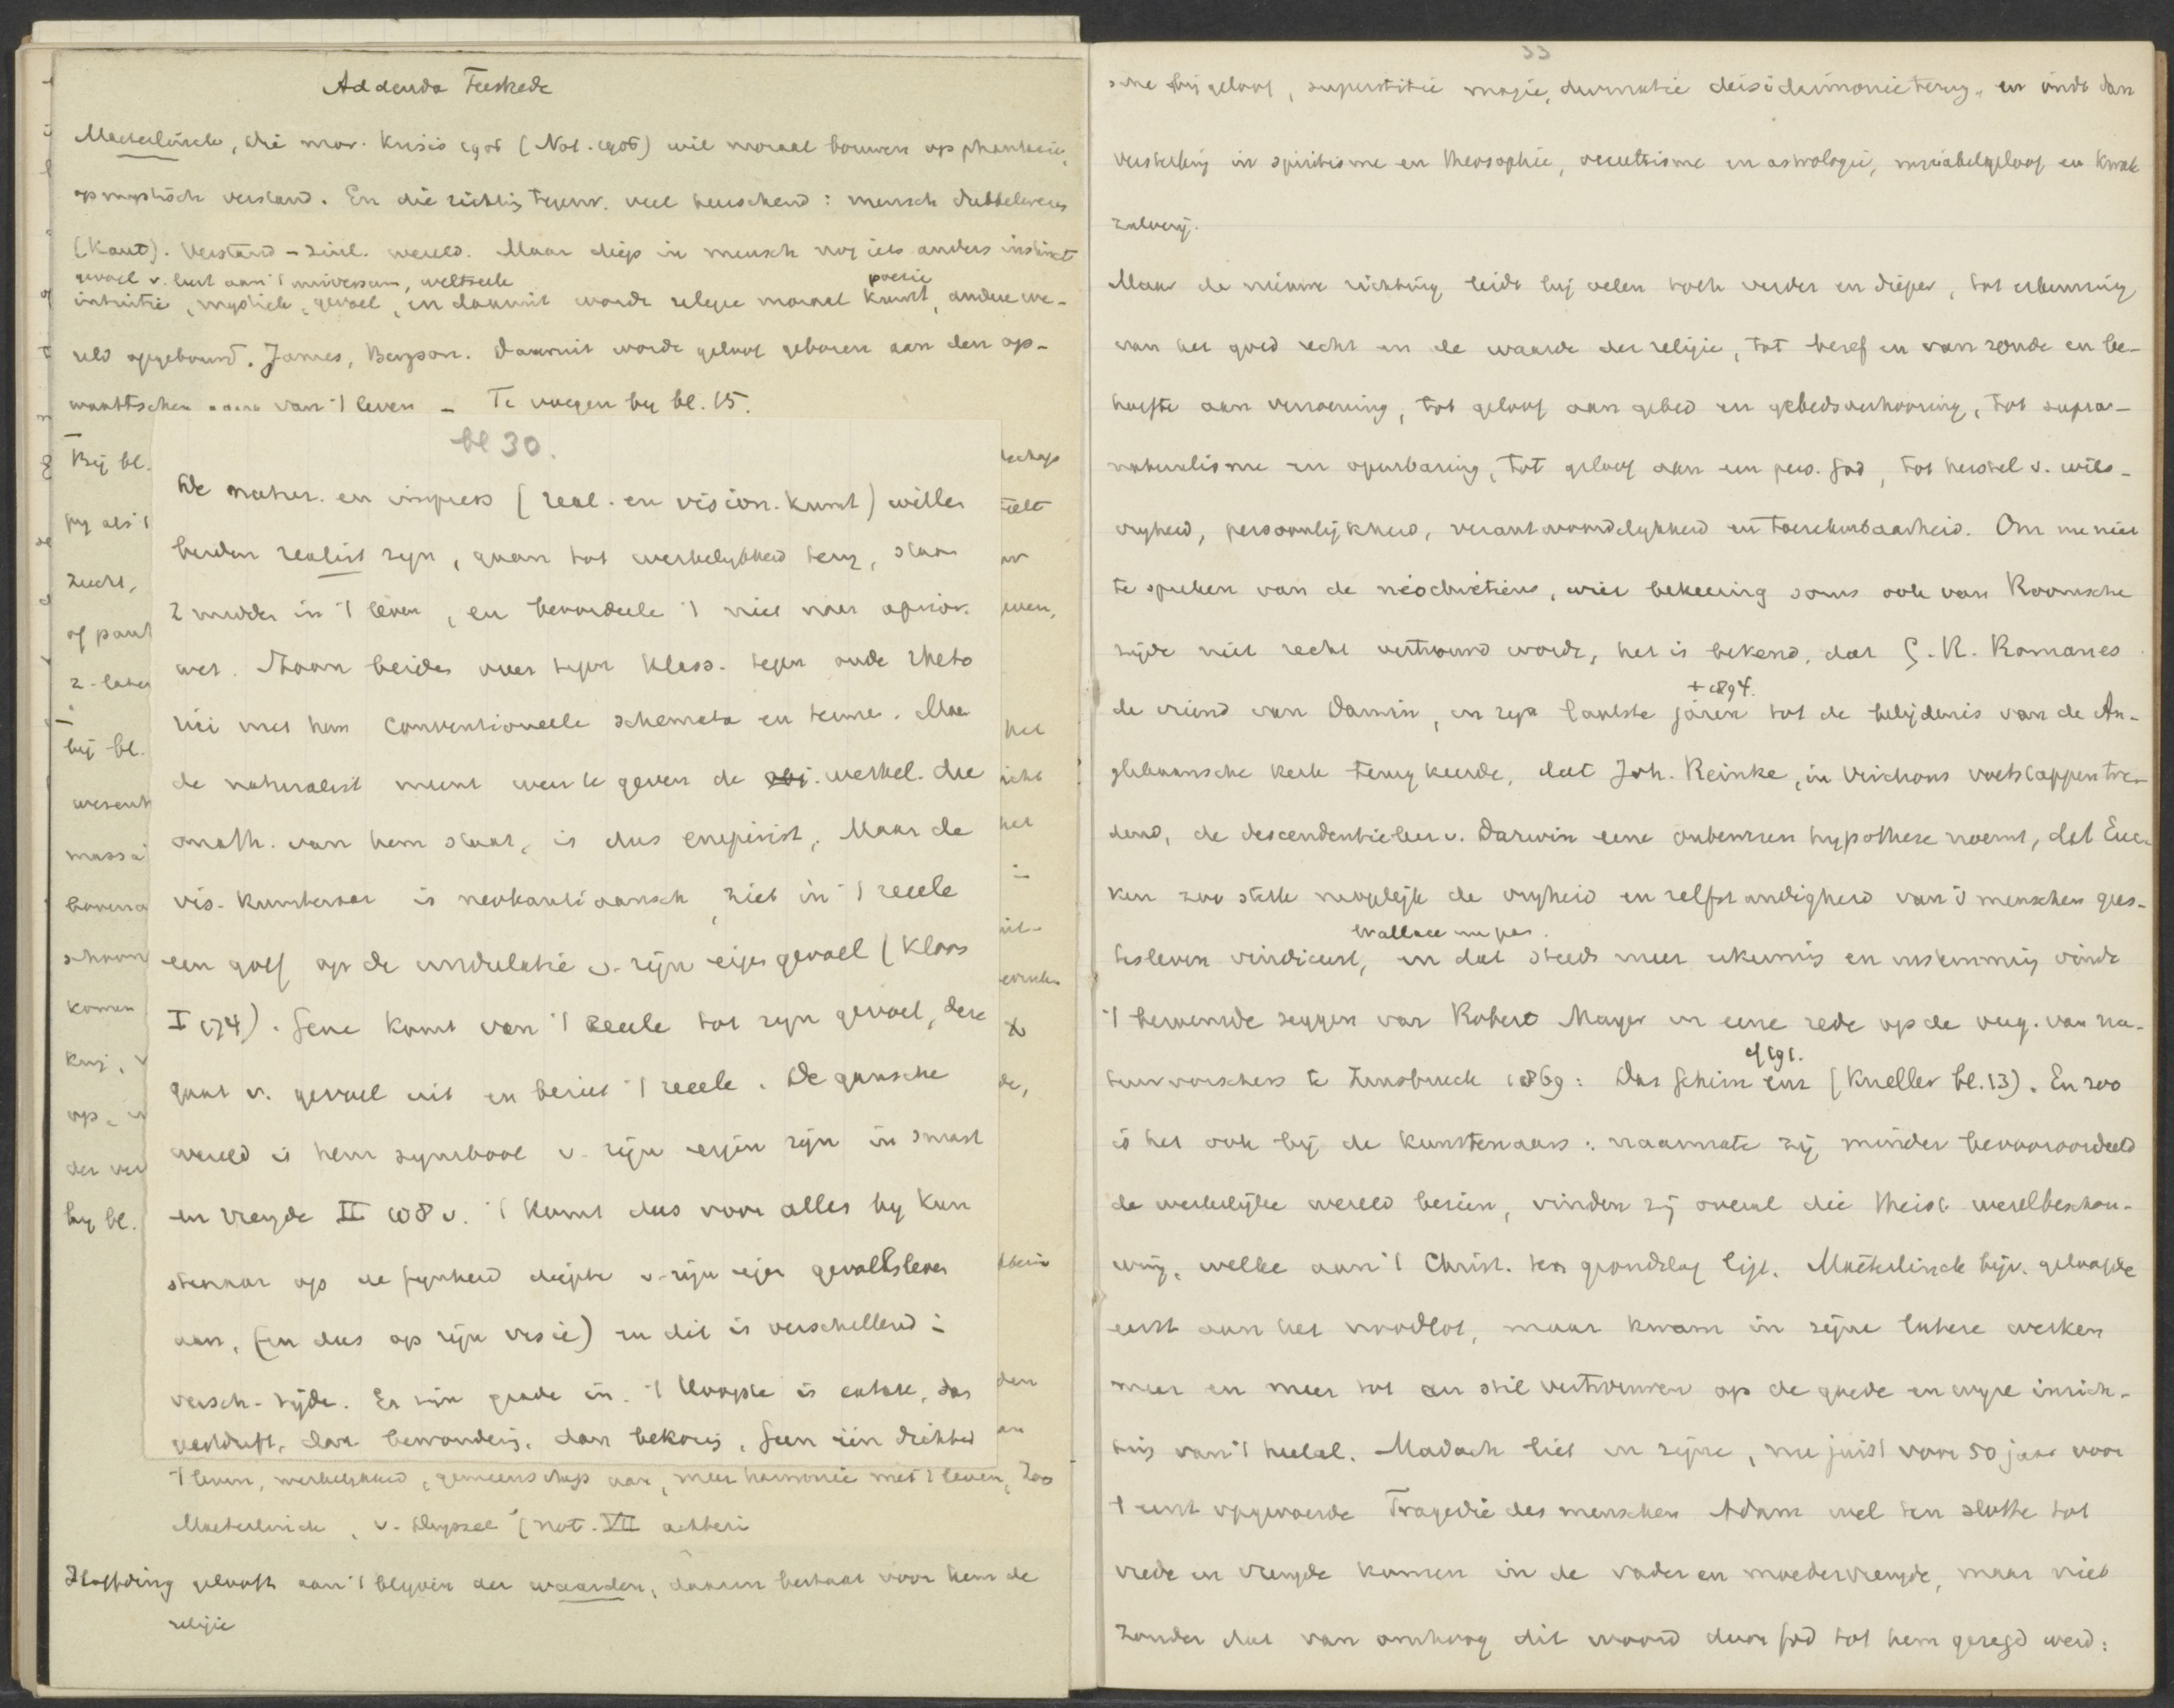 Addenda
Maeterlinck, die mor. Krisis 1906 (Not. 1906) wil moraal bouwen op phantasie,
op mystisch verstand. En die richting tegenw. veel heerschend: mensch dubbelwezen
(Kant). Verstand - zinl. wereld. Maar diep in mensch nog iets anders instinct
gevoel v. 't universum, weltseele
poezie
intuitie, mystiek, gevoel, en daaruit wordt religie moraal kunst, andere we-
reld opgebouwd. James, Bergson. Daaruit wordt geloof geboren aan den op-
van 't leven - Te voegen by bl. 15.
bl 30.
De natur. en impress (real. en vision. kunst) willen
beiden realist zyn, gaan tot werkelykheid terug, staan
midden in 't leven, en beoordeele 't niet naar aprior.
wet. Staan beides over tegen klass. tegen oude rheto
riek met hare conventioneele schemata en termen. Maar
de naturalist meent weer te geven de obj. werkel. die
onafh. van hem staat, is dus empirist. Maar de
vis. kunstenaar is neokantiaansch, ziet in 't reeele
een golf op de undulatie v. zijn eigen gevoel (Kloos
I 174). Gene komt van 't reeele tot zyn gevoel, deze
gaat v. gevoel uit en beziet 't reeele. De gansche
wereld is hem symbool v. zijn eigen zijn in smart
en vreugde II 108 v. 't Komt dus voor alles by kun
stenaar op de fynheid diepte v. zijn eigen gevoelsleven
aan, (en dus op zijn visie) en dit is verschillend in
versch. tijden. Er zijn graden in. 't Hoogste is extase, dan
geestdrift, dan bewondering, dan bekoring. Geen één dichter
't leven, werkelykheid, gemeenschap aan, meer harmonie met 't leven, zoo
Maeterlinck, v. Deyssel (not. VII achterin
Höffding gelooft aan 't blijven der waarden, daarin bestaat voor hem de
religie
33
bijgeloof, superstitie magie, deisidaimonie terug, en vindt dan
versterking in spiritisme en theosophie, occultisme en astrologie, mirabelgeloof en kwak
zalverij.
Maar de nieuwe richting leidt bij velen toch verder en dieper, tot erkenning
van het goed recht en de waarde der religie, tot besef en van zonde en be-
hoefte aan verzoening, tot geloof aan gebed en gebedsverhooring, tot supra-
naturalisme en openbaring, tot geloof aan een pers. God, tot herstel v. wils-
vrijheid, persoonlijkheid, verantwoordelijkheid en toerekenbaarheid. Om nu niet
te spreken van de néochrétiens, wier bekeering soms ook van Roomsche
zijde niet recht vertrouwd wordt, het is bekend, dat G. R. Romanes
+ 1894.
de vriend van Darwin, in zijn laatste jaren tot de belijdenis van de An-
glikaansche kerk terugkeerde, dat Joh. Reinke, in Virchows voetstappen tre-
dend, de descendentieleer v. Darwin eene onbewezen hypothese noemt, dat Euc-
ken zoo sterk mogelijk de vrijheid en zelfstandigheid van 's menschen gees-
Wallace
testleven vindiceert, en dat steeds meer erkenning en instemming vindt
't beroemde zeggen van Robert Mayer in eene rede op de verg. van na-
tuurvorschers te Innsbruck 1869: (Kneller bl. 13). En zoo
is het ook bij de kunstenaars: naarmate zij minder bevooroordeeld
de werkelijke wereld bezien, vinden zij overal die theist. wereldbeschou-
wing, welke aan 't Christ. ten grondslag ligt. Maeterlinck bijv. geloofde
eerst aan het noodlot, maar kwam in zijne latere werken
meer en meer tot een stil vertrouwen op de goede en wijze inrich-
ting van 't heelal. Madach liet in zijne, nu juist voor 50 jaar voor
't eerst opgevoerde Tragedie des menschen Adam wel ten slotte tot
vrede en vreugde komen in de vader en moedervreugde, maar niet
zonder dat van omhoog dit woord door God tot hem gezegd werd: